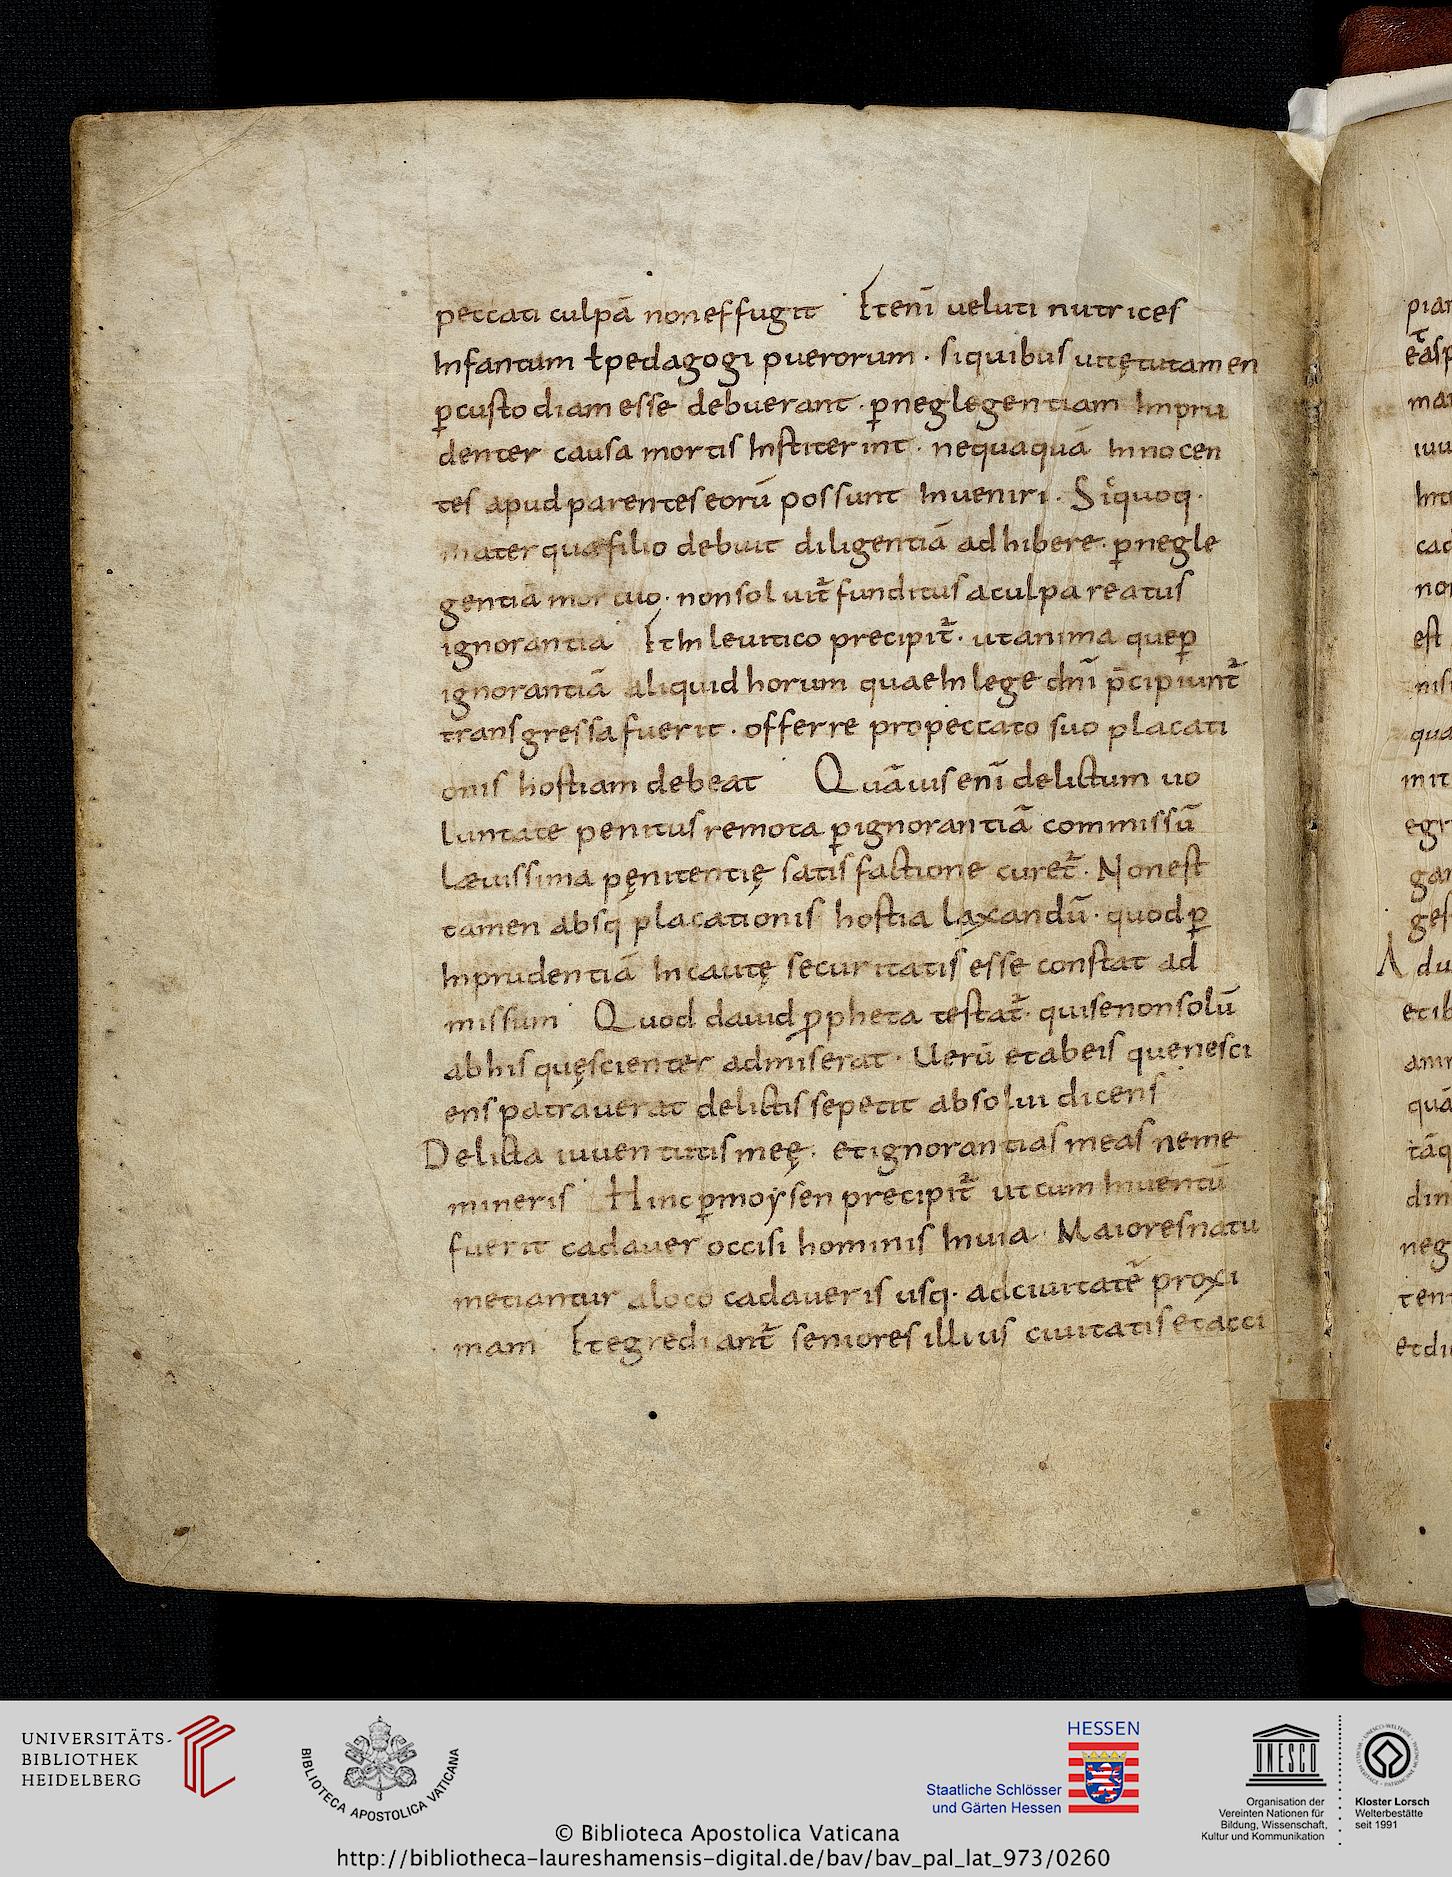 peccati culpā non effugit Et enī veluti nutrices
Infantum ł pedagogi puerorum · si quibus vitę tutamen
ꝑ custodiam esse debuerant · ꝑ neglegentiam Inpru
denter causa mortis Institerint · nequaquā Innocen
tes apud parentes eorū possunt Inveniri · Si quoq·
mater quæ filio debuit diligentiā adhibere · ꝑ negle
gentiā mortuo · non solvit᷑ funditus a culpa reatus
ignorantia Et In levitico precipit᷑ · ut anima que ꝑ
ignorantiā aliquid horum quae In lege dn̄i p̄cipiunt᷑
transgressa fuerit · offerre pro peccato suo placati
onis hostiam debeat Quāvis enī delictum vo
luntate penitus remota ꝑ ignorantiā commissū
lævissima pęnitentię satisfactione curet᷑ · Non est
tamen absq placationis hostia laxandū · quod ꝑ
Inprudentiā Incautę securitatis esse constat ad
missum Quod david ꝓpheta testat᷑ · qui se non solū
ab his quę scienter admiserat · Verū et ab eis que nesci
ens patraverat delictis se petit absolvi dicens
Delicta iuventutis meę · et ignorantias meas ne me
mineris Hinc ꝑ moẏsen precipit᷑ ut cum Inventū
fuerit cadaver occisi hominis In via · Maiores natu
metiantur a loco cadaveris usq· ad civitatē proxi
mam Et egrediant᷑ seniores illius civitatis et acci
UNIVERSITÄTS-
BIBLIOTHEK
HEIDELBERG
BIBLIOTECA APOSTOLICA VATICANA
HESSEN
Staatliche Schlösser
und Gärten Hessen
UNESCO
Organisation der
Vereinten Nationen für
Bildung, Wissenschaft,
Kultur und Kommunikation
Kloster Lorsch
Welterbestätte
seit 1991
© Biblioteca Apostolica Vaticana
http://bibliotheca-laureshamensis-digital.de/bav/bav_pal_lat_973/0260